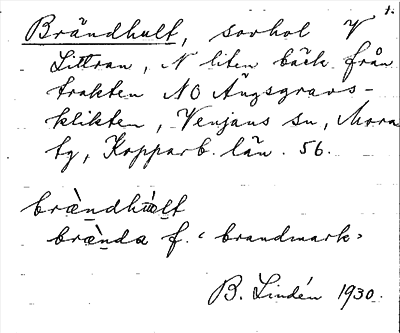 1.
Brändhult, sovhol V
Littran, N liten bäck från
trakten NO Ängsgravs-
klikten, Venjans sn, Mora
tg, Kopparb. län. 56.
bræ̀ndhùlt
bræ̀nda f. ‹ brandmark›
B. Lindén 1930.